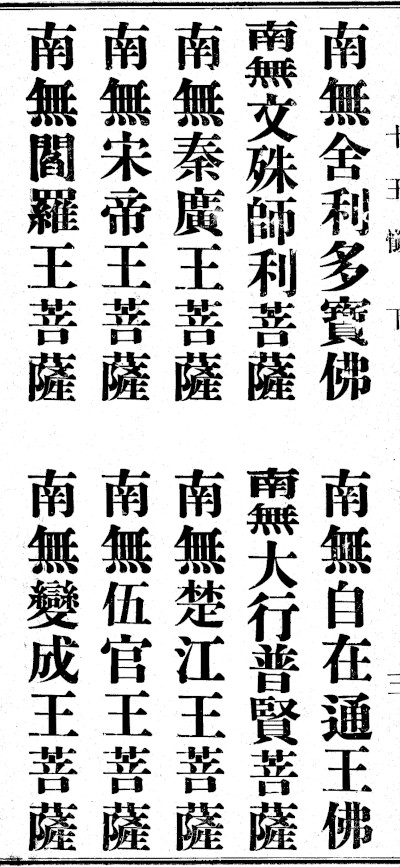 十王懺下 三
南無舍利多寶佛 南無自在通王佛
南無文殊師利菩薩 南無大行普賢菩薩
南無秦廣王菩薩 南無楚江王菩薩
南無宋帝王菩薩 南無伍官王菩薩
南無閻羅王菩薩 南無變成王菩薩